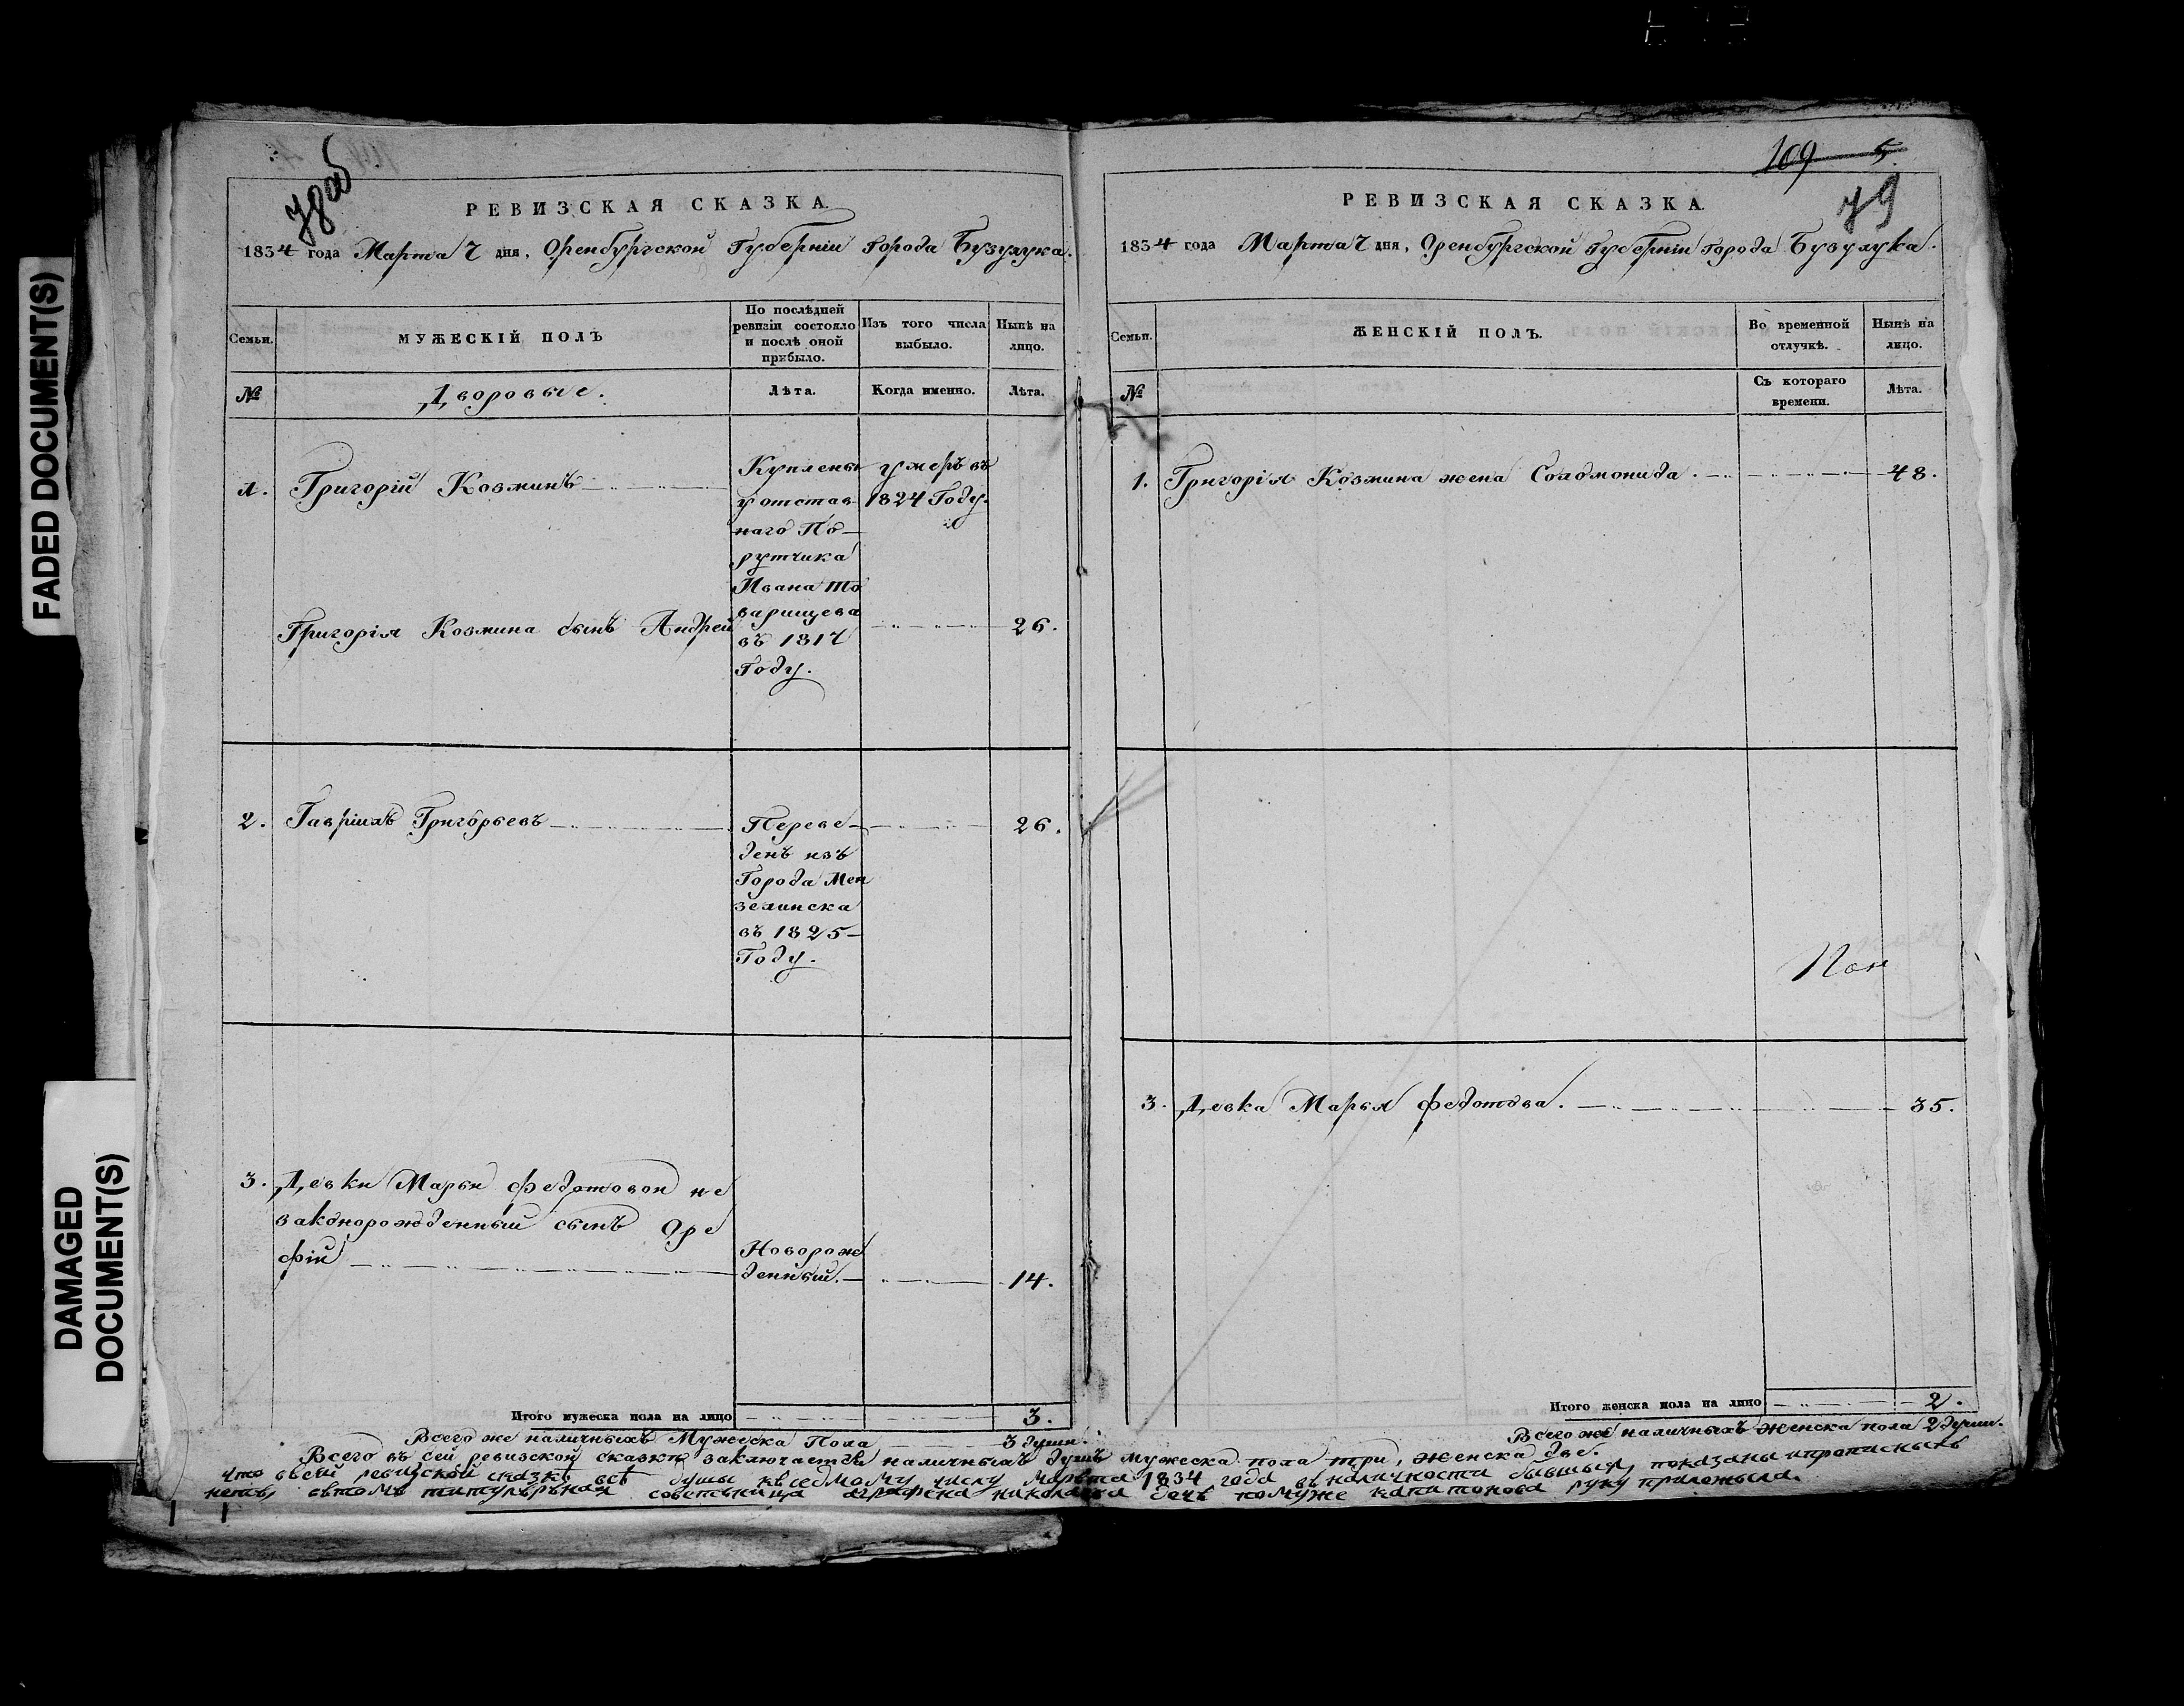 FADED DOCUMENT(S)
DAMAGED
DOCUMENT(S)
78об
РЕВИЗСКАЯ СКАЗКА
1834 года Марта 7 дня, Оренбургской Губерніи Города Бузулука.
Семьи.
МУЖЕСКІЙ ПОЛЪ
По послѣдней
ревизіи состояло
и послѣ оной
прибыло.
Изъ того числа
выбыло.
Нынѣ на
лицо.
№
Дворовые.
Лѣта.
Когда именно.
Лѣта.
1. Григорій Козминъ
Куплены
у отстав
наго По-
рутчика
Ивана То
варищева
въ 1817
Году.
умеръ въ
1824 Году.
Григорія Козмина сынъ Андрей
26.
2. Гавріилъ Григорьевъ
Переве-
денъ изъ
Города Мен
зелинска
въ 1825-
Году.
26.
3. Девки Марьи Федотовой не
закднорожденный сынъ Оре
фій
Новорож
денный.
14.
Итого мужеска пола на лицо
3.
Всего же наличныхъ Мужеска Пола 3 души.
109 5.
79
РЕВИЗСКАЯ СКАЗКА
1834 года Марта 7 дня, Оренбургской Губерніи Города Бузулука.
Семьи.
ЖЕНСКІЙ ПОЛЪ.
Во временной
отлучкѣ.
Нынѣ на
лицо.
№
Съ котораго
времени.
Лѣта.
1. Григорія Козмина жена Соломонида. 48.
3. Девка Марья Федотова. 35.
Итого женска пола на лицо 2.
Всего же наличныхъ женска пола 2 души.
Всего въ сей ревизской сказкѣ заключается наличныхъ душъ мужеска пола три, женска две.
что всей ревизской сказкѣ всѣ душы кседмому числу марта 1834 года въ наличности бывшыя, показаны ипрописныхъ
нетъ, втомъ титулярная советница аграфена николаева дочь помуже капитонова руку приложыла.